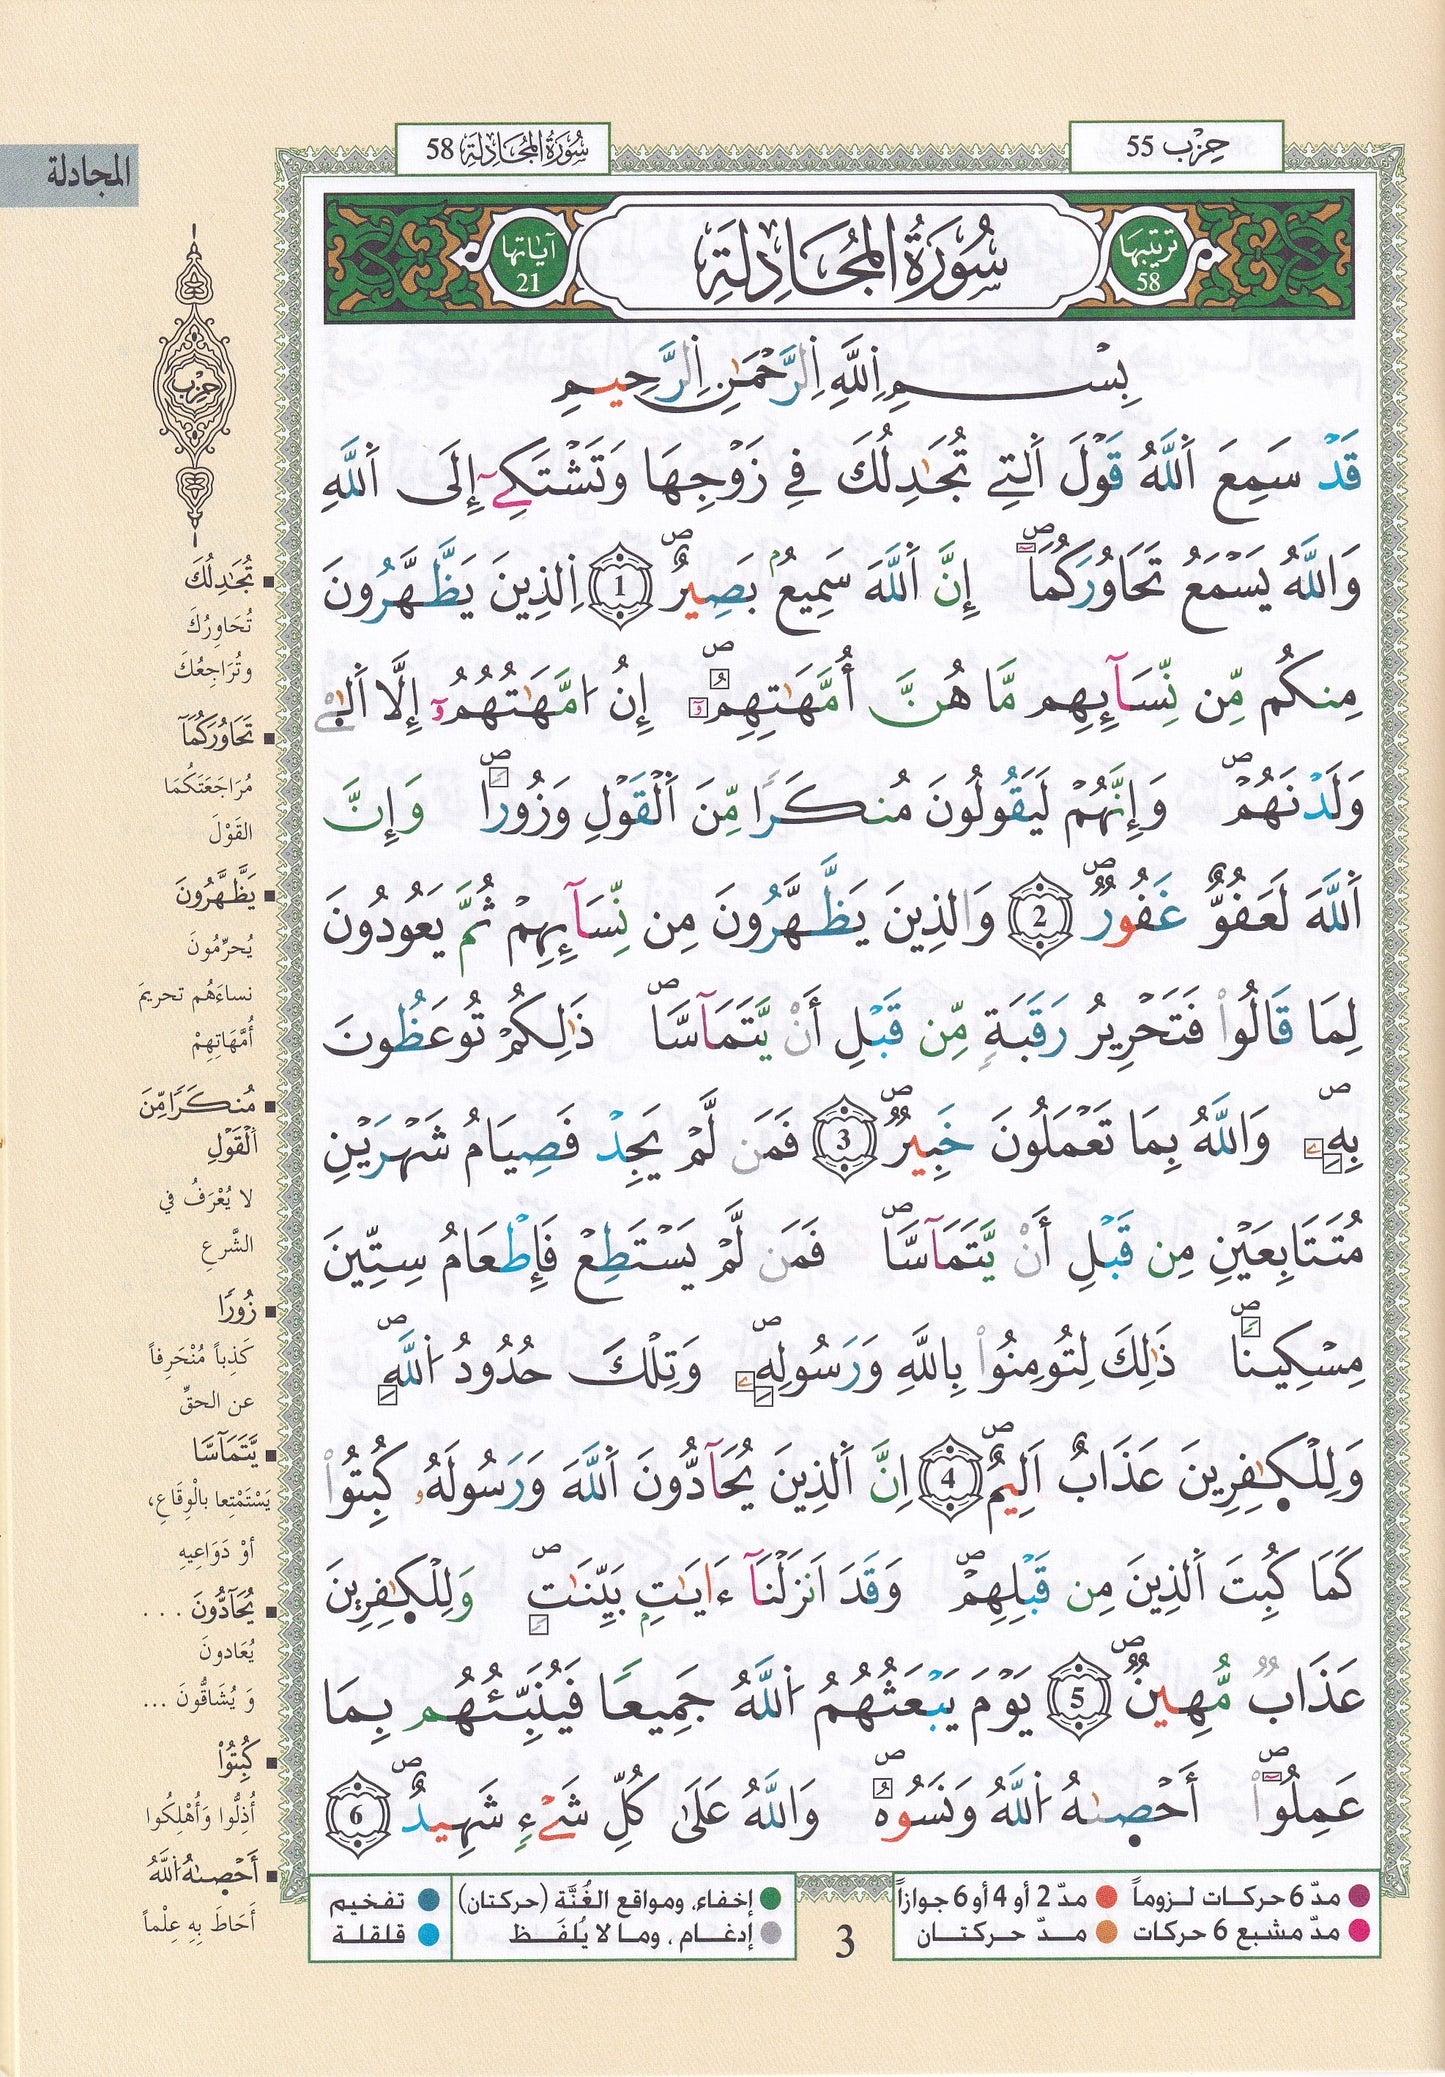 حِزْب 55
سُورَةُ المُجَادِلَةِ 58
المجادلة
تَرتيبها 58
سُورَةُ المُجَادِلَةِ
آيَاتها 21
بِسْمِ اِللَّهِ اِلرَّحْمَٰنِ اِلرَّحِيمِ
قَدْ سَمِعَ اَللَّهُ قَوْلَ اَلتِے تُجَٰدِلُكَ فِے زَوْجِهَا وَتَشْتَكِےٓ إِلَى اَللَّهِ
وَاللَّهُ يَسْمَعُ تَحَاوُرَكُمَآ إِنَّ اَللَّهَ سَمِيعُۢ بَصِيرٌ 1 اِلذِينَ يَظَّهَّرُونَ
مِنكُم مِّن نِّسَآئِهِم مَّا هُنَّ أُمَّهَٰتِهِمُۥٓ إِنُ اُمَّهَٰتُهُمُۥٓ إِلَّا اَلَٰٓـِٔے
وَلَدْنَهُمْ وَإِنَّهُمْ لَيَقُولُونَ مُنكَرًا مِّنَ اَلْقَوْلِ وَزُورًا وَإِنَّ
اَللَّهَ لَعَفُوٌّ غَفُورٌ 2 وَالذِينَ يَظَّهَّرُونَ مِن نِّسَآئِهِمْ ثُمَّ يَعُودُونَ
لِمَا قَالُواْ فَتَحْرِيرُ رَقَبَةٍ مِّن قَبْلِ أَنْ يَّتَمَآسَّا ذَٰلِكُمْ تُوعَظُونَ
بِهِۦ وَاللَّهُ بِمَا تَعْمَلُونَ خَبِيرٌ 3 فَمَن لَّمْ يَجِدْ فَصِيَامُ شَهْرَيْنِ
مُتَتَابِعَيْنِ مِن قَبْلِ أَنْ يَّتَمَآسَّا فَمَن لَّمْ يَسْتَطِعْ فَإِطْعَامُ سِتِّينَ
مِسْكِينًا ذَٰلِكَ لِتُومِنُواْ بِاللَّهِ وَرَسُولِهِۦ وَتِلْكَ حُدُودُ اُللَّهِ
وَلِلْكَٰفِرِينَ عَذَابٌ اَلِيمٌ 4 اِنَّ اَلذِينَ يُحَآدُّونَ اَللَّهَ وَرَسُولَهُۥ كُبِتُواْ
كَمَا كُبِتَ اَلذِينَ مِن قَبْلِهِمْ وَقَدَ اَنزَلْنَآ ءَايَٰتِۢ بَيِّنَٰتٍ وَلِلْكَٰفِرِينَ
عَذَابٌ مُّهِينٌ 5 يَوْمَ يَبْعَثُهُمُ اُللَّهُ جَمِيعًا فَيُنَبِّئُهُم بِمَا
عَمِلُوٓاْ أَحْصَىٰهُ اُللَّهُ وَنَسُوهُ وَاللَّهُ عَلَىٰ كُلِّ شَےْءٍ شَهِيدٌ 6
تُجَٰدِلُكَ
تُحَاوِرُكَ
وتُرَاجِعُكَ
تَحَاوُرَكُمَآ
مُرَاجَعَتَكُمَا
القَوْلَ
يَظَّهَّرُونَ
يُحرِّمُونَ
نساءَهُم تحريمَ
أُمَّهَاتِهِمْ
مُنكَرًا مِّنَ
اَلْقَوْلِ
لا يُعْرَفُ في
الشَّرعِ
زُورًا
كَذِباً مُنْحَرِفاً
عن الحقِّ
يَّتَمَآسَّا
يَسْتَمْتِعا بالْوِقَاعِ،
أوْ دَوَاعِيهِ
يُحَآدُّونَ ...
يُعَادونَ
وَ يُشَاقُّونَ ...
كُبِتُواْ
أُذِلُّوا وَأُهْلِكُوا
أَحْصَىٰهُ اُللَّهُ
أَحَاطَ بِهِ عِلْماً
حِزْب
مدّ 6 حركات لـزوماً
مدّ 2 أو 4 أو 6 جوازاً
مدّ مشبع 6 حركات
مــدّ حـركتـــان
3
إخفاء، ومواقع الغُنَّة (حركتان)
إدغــام ، وما لا يُلفَـظ
تفخيم
قلقلـة